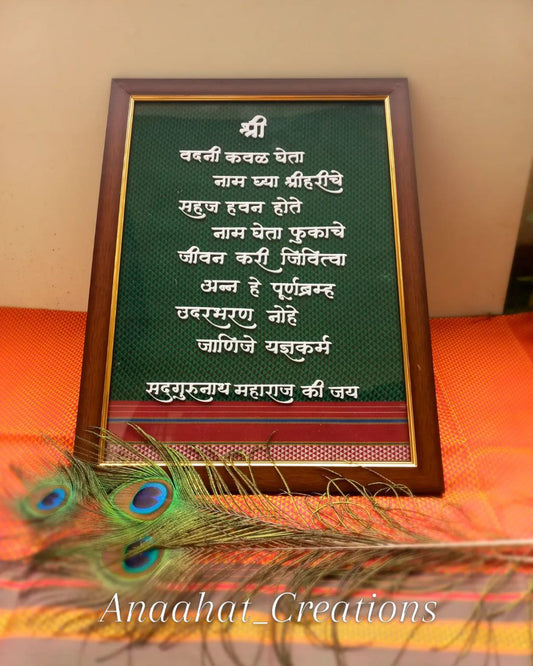 श्री
वदनी कवळ घेता
नाम घ्या श्रीहरीचे
सहज हवन होते
नाम घेता फुकाचे
जीवन करी जिवित्वा
अन्न हे पूर्णब्रम्ह
उदरभरण नोहे
जाणिजे यज्ञकर्म
सदगुरुनाथ महाराज की जय
Anaahat_Creations